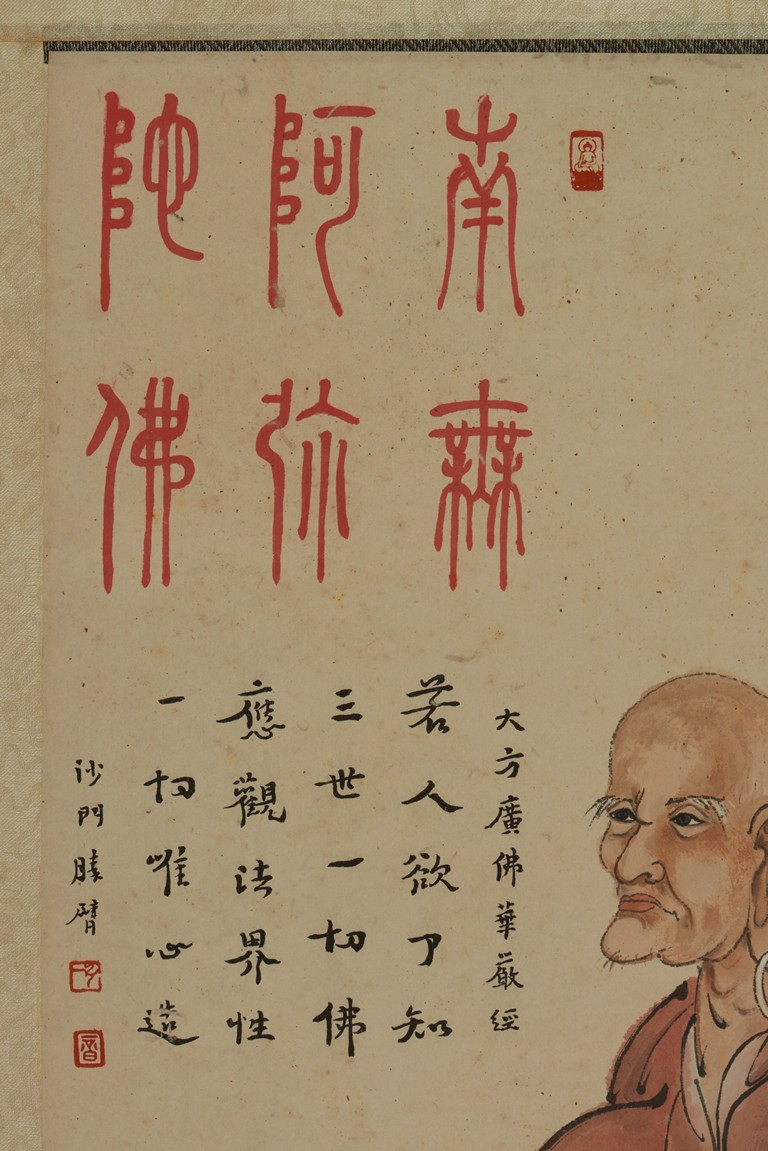 南無
阿弥
陀佛
大方廣佛華嚴經
若人欲了知
三世一切佛
應觀法界性
一切唯心造
沙門勝臂
音